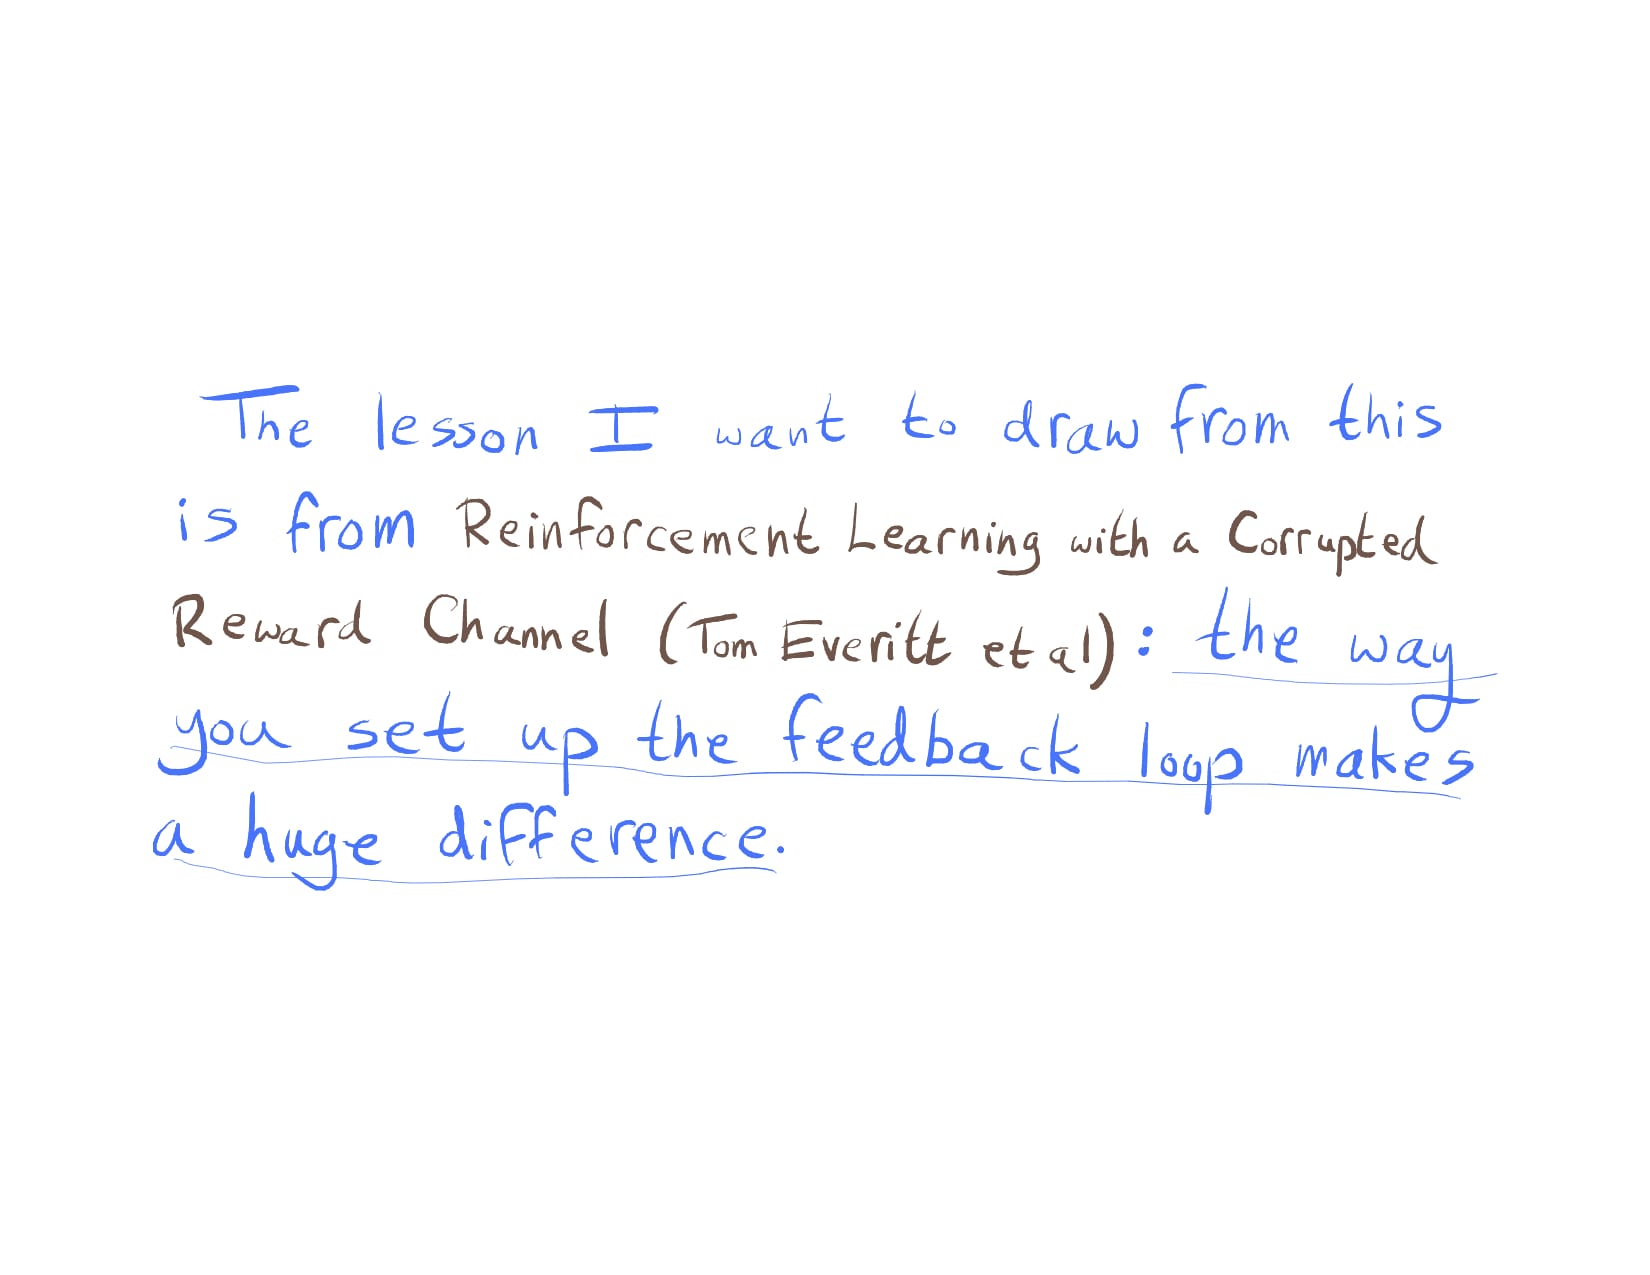 The lesson I want to draw from this
is from Reinforcement Learning with a Corrupted
Reward Channel (Tom Everitt et al): the way
you set up the feedback loop makes
a huge difference.